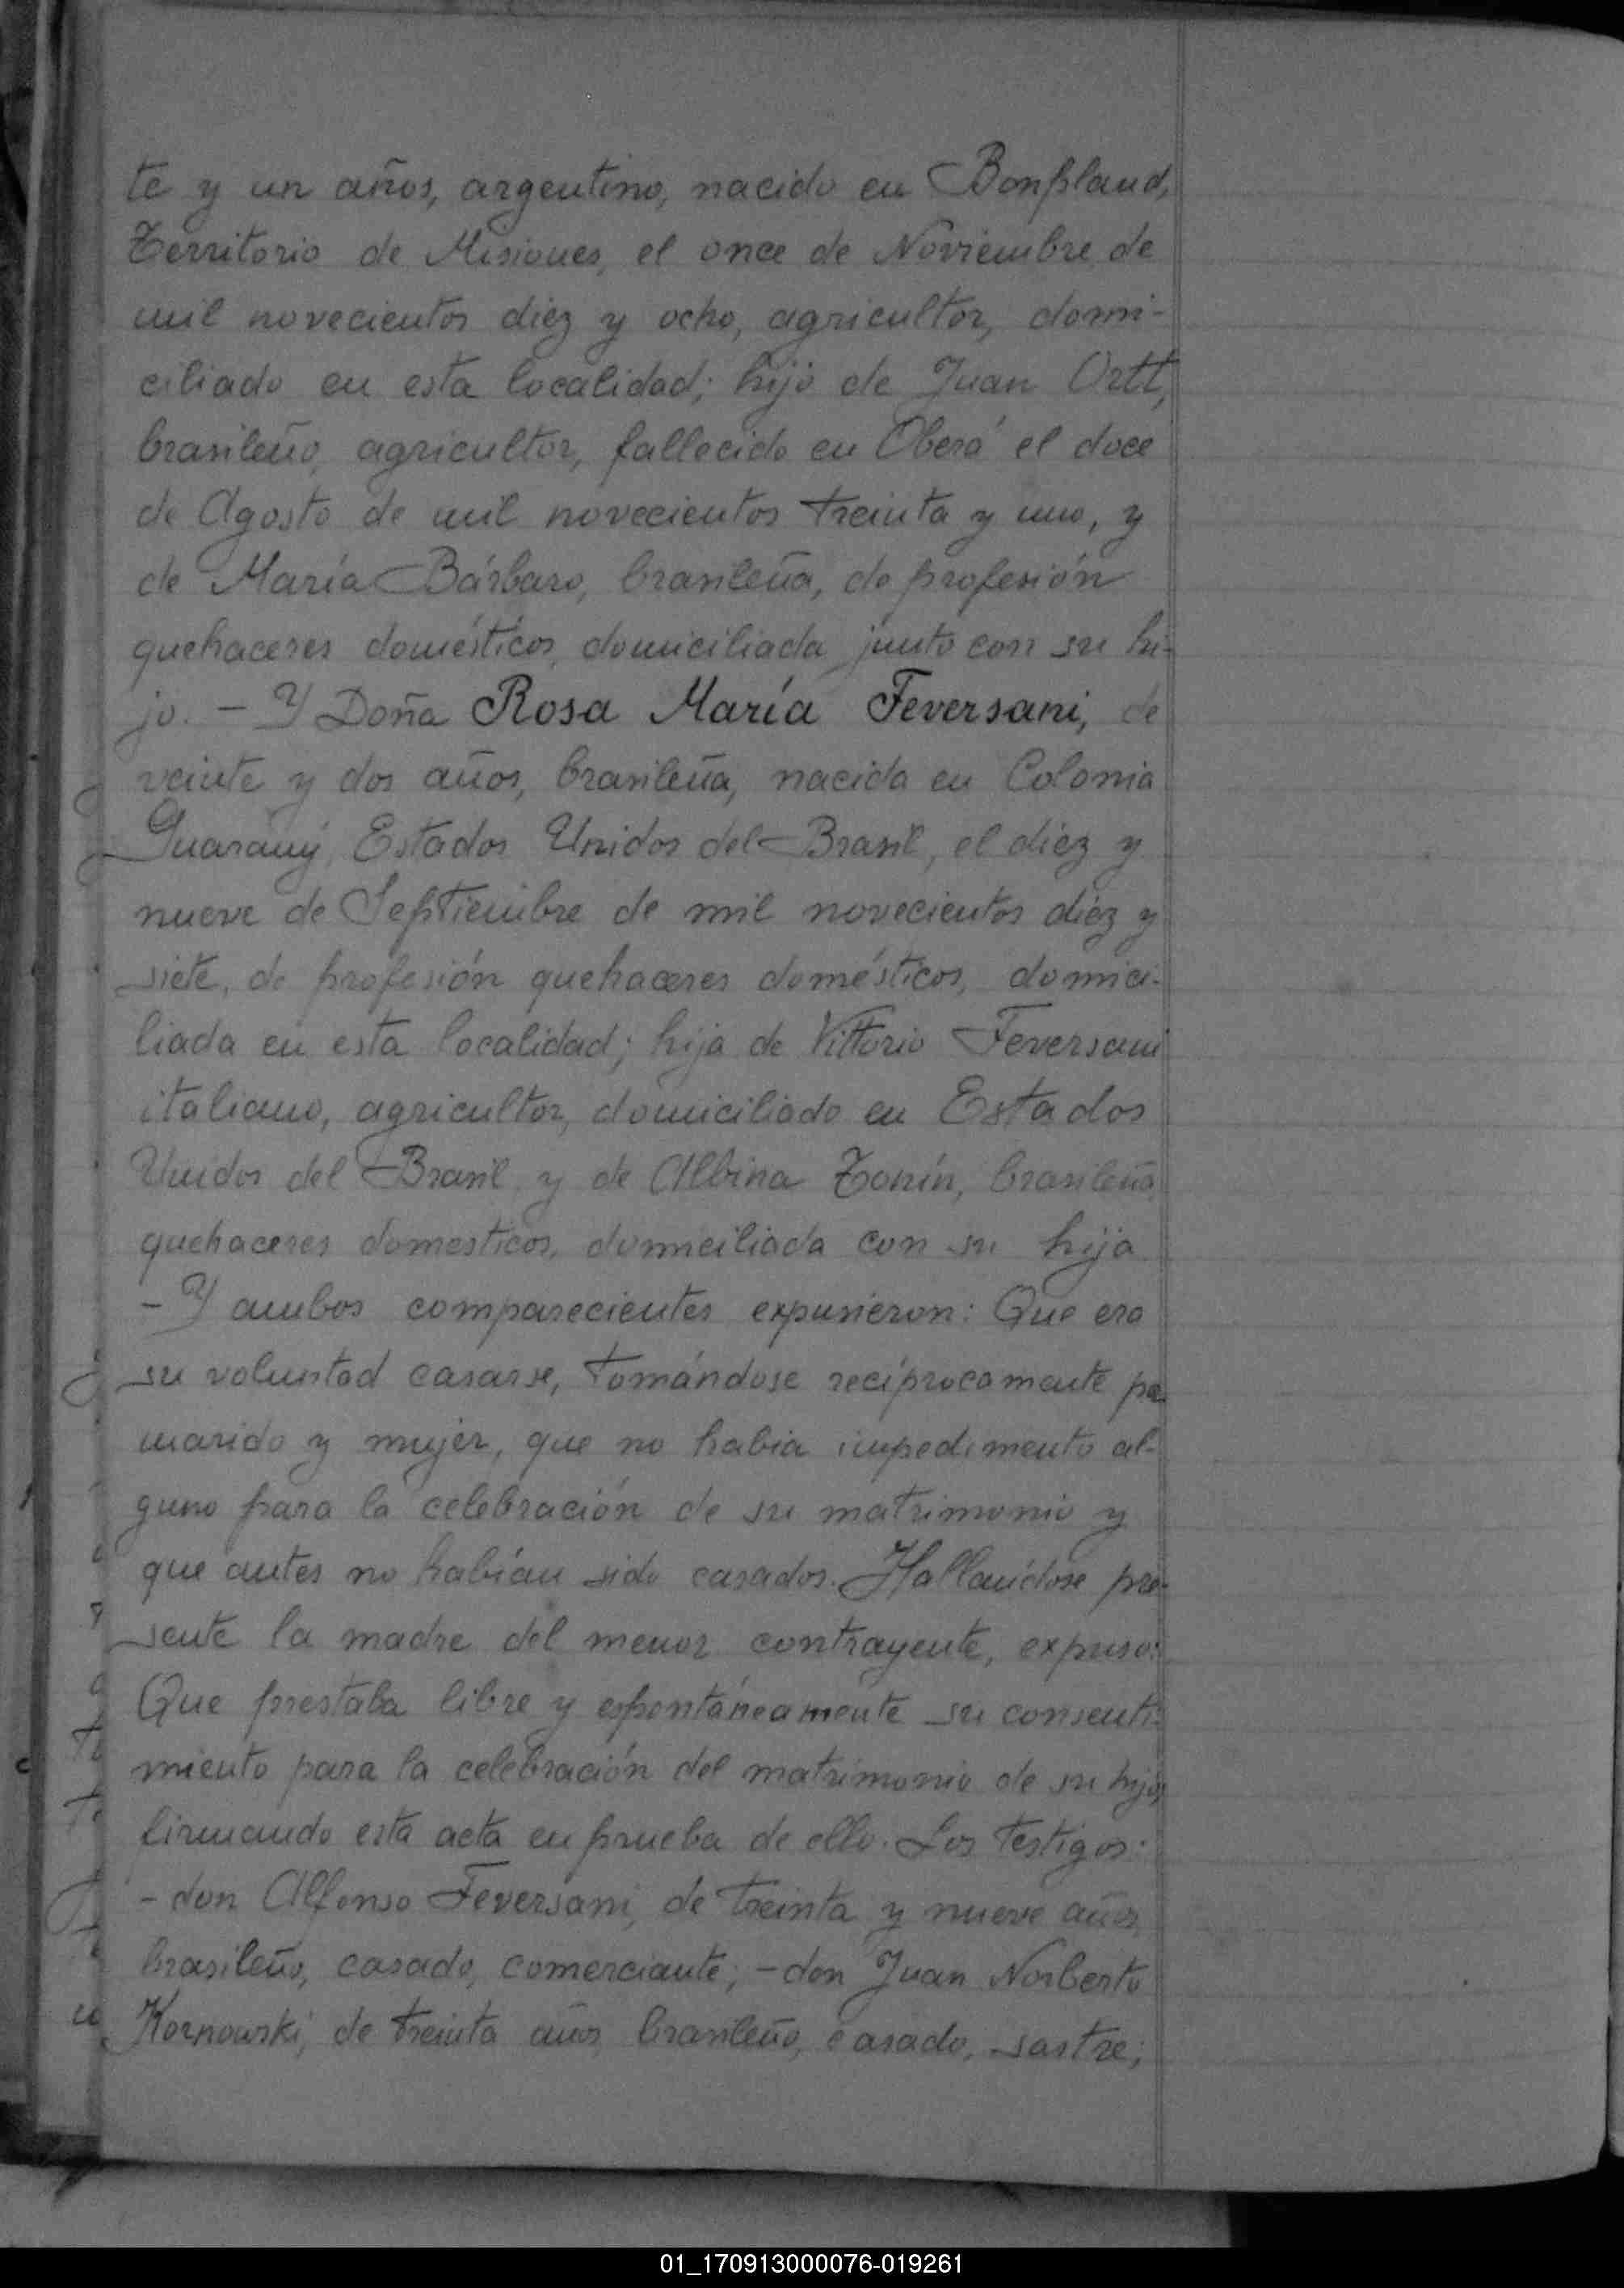 te y un años, argentino, nacido en Bonpland,
Territorio de Misiones, el once de Noviembre de
mil novecientos diez y ocho, agricultor, domi-
ciliado en esta localidad; hijo de Juan Ortt,
brasileño, agricultor, fallecido en Oberá el doce
de Agosto de mil novecientos treinta y uno, y
de María Bárbaro, brasileña, de profesión
quehaceres domésticos, domiciliada junto con su hi-
jo. - Y Doña Rosa María Feversani, de
veinte y dos años, brasileña, nacida en Colonia
Guarany, Estados Unidos del Brasil, el diez y
nueve de Septiembre de mil novecientos diez y
siete, de profesión quehaceres domésticos, domici-
liada en esta localidad; hija de Vittorio Feversani
italiano, agricultor, domiciliado en Estados
Unidos del Brasil y de Albina Tonín, brasileña
quehaceres domesticos, domiciliada con su hija
- Y ambos comparecientes expusieron: Que era
su voluntad casarse, tomándose recíprocamente por
marido y mujer, que no habia impedimento al-
guno para la celebración de su matrimonio y
que antes no habían sido casados. Hallándose pre-
sente la madre del menor contrayente, expuso:
Que prestaba libre y espontáneamente su consenti-
miento para la celebración del matrimonio de su hijo,
firmando esta acta en prueba de ello. Los testigos:
- don Alfonso Feversani, de treinta y nueve años,
brasileño, casado, comerciante; - don Juan Norberto
Kornowski, de treinta años, brasileño, casado, sastre;
01_170913000076-019261